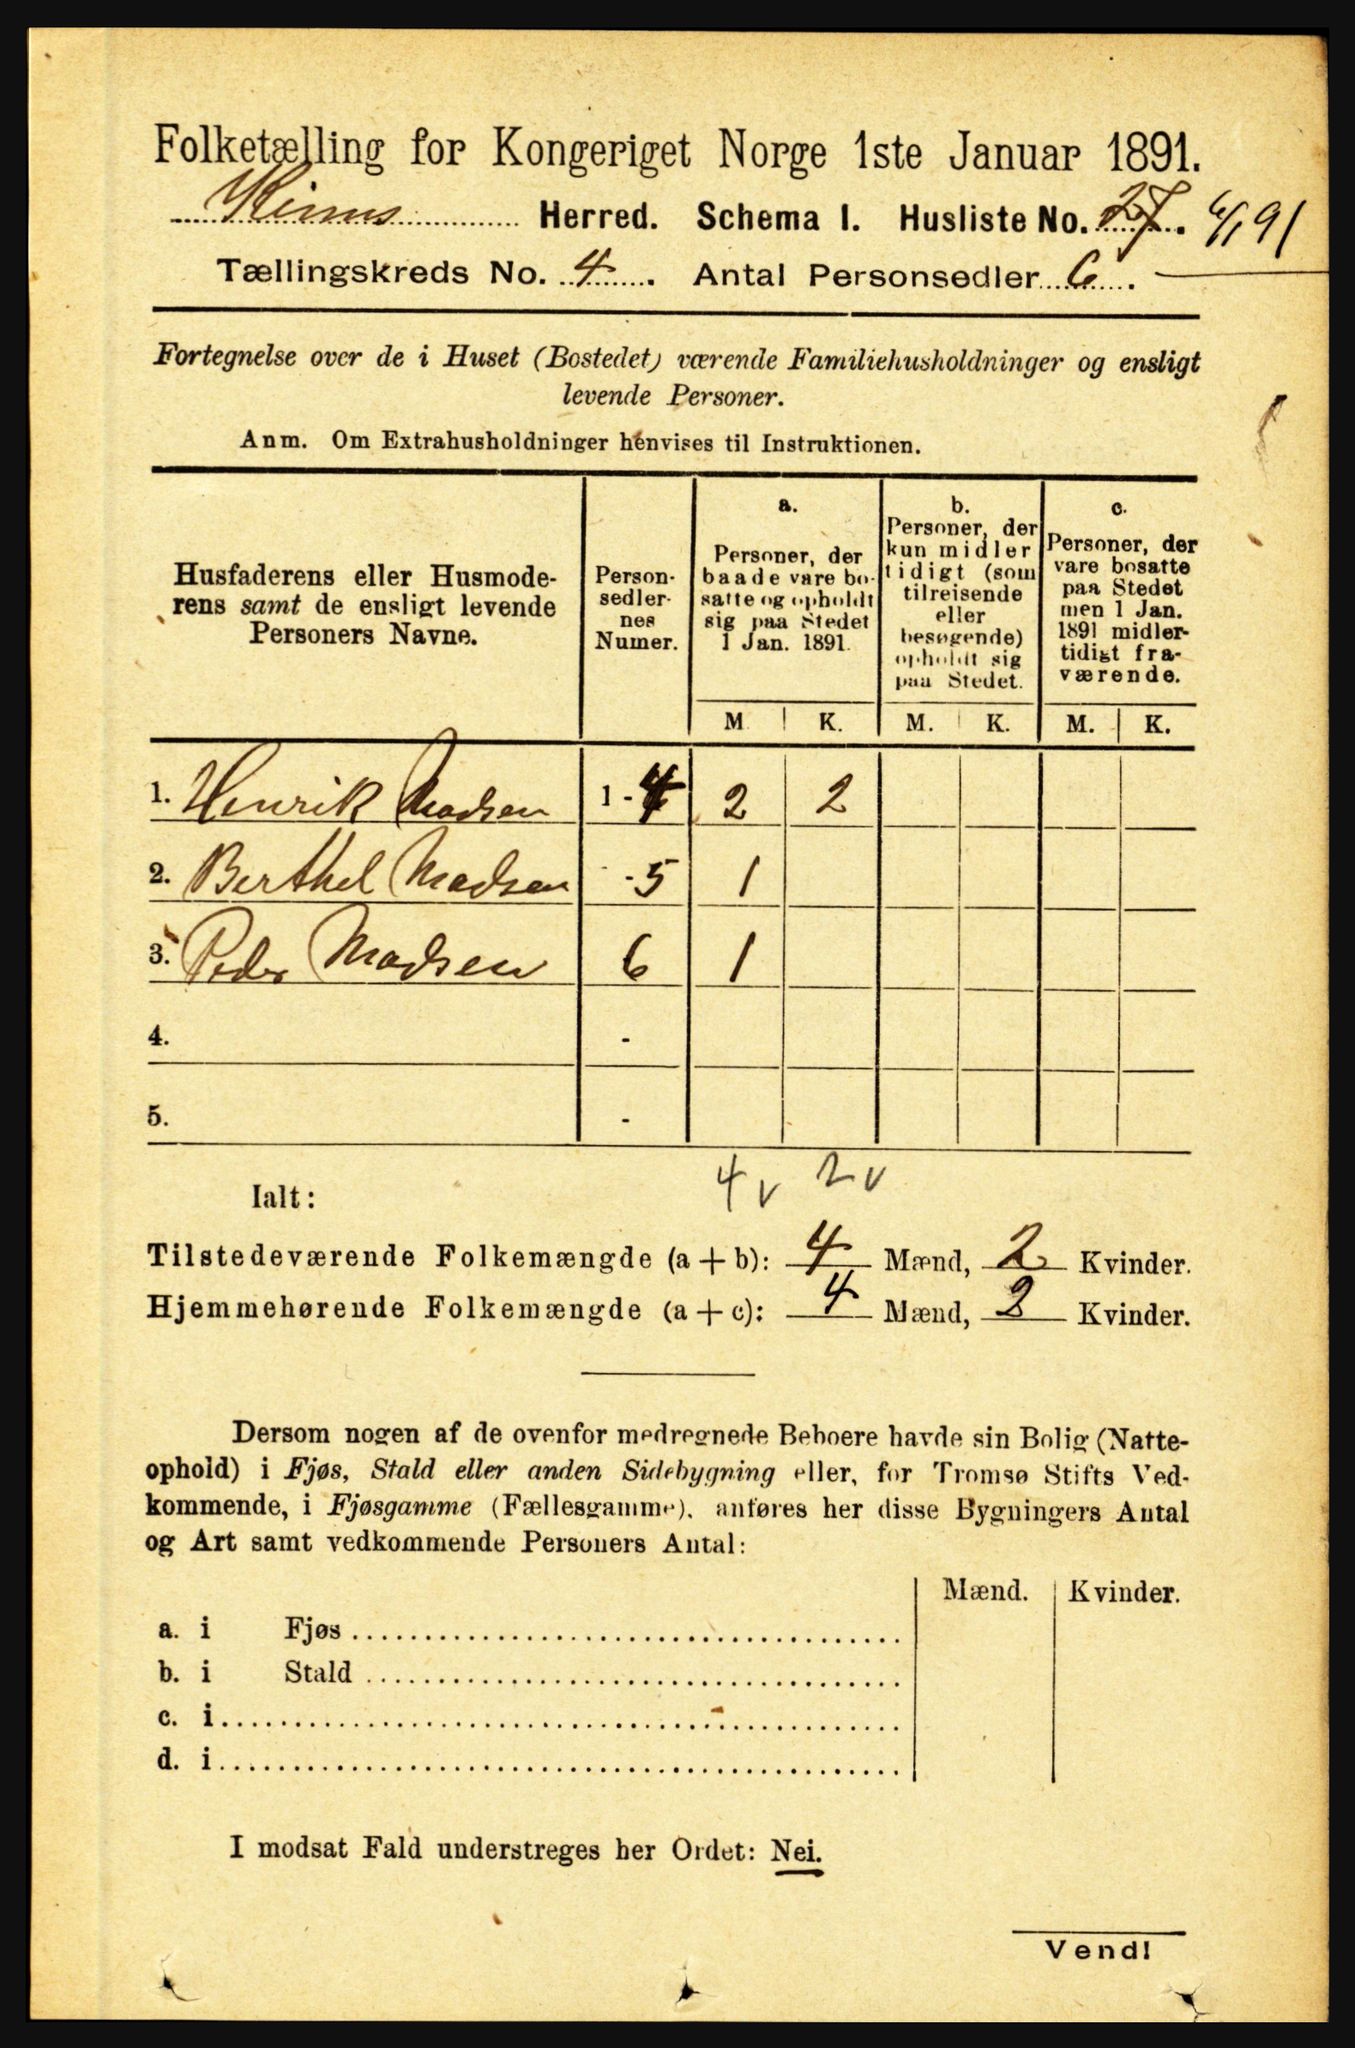 Folketælling for Kongeriget Norge 1ste Januar 1891.
Kinns Herred. Schema I. Husliste No. 27.
Tællingskreds No. 4. Antal Personsedler 6.
Fortegnelse over de i Huset (Bostedet) værende Familiehusholdninger og ensligt
levende Personer.
Anm. Om Extrahusholdninger henvises til Instruktionen.
Husfaderens eller Husmode-
rens samt de ensligt levende
Personers Navne.
Person-
sedler-
nes
Numer.
a.
Personer, der
baade vare bo-
satte og opholdt
sig paa Stedet
1 Jan. 1891.
b.
Personer, der
kun midler
tidigt (som
tilreisende
eller
besøgende)
opholdt sig
paa Stedet.
c.
Personer, der
vare bosatte
paa Stedet
men 1 Jan.
1891 midler-
tidigt fra-
værende.
M. K. M. K. M. K.
1. Henrik Madsen 1 - 4 2 2
2. Berthel Madsen - 5 1
3. Peder Madsen 6 1
4. -
5. -
4 v 2 v
Ialt:
Tilstedeværende Folkemængde (a + b): 4 Mænd, 2 Kvinder.
Hjemmehørende Folkemængde (a + c): 4 Mænd, 2 Kvinder.
Dersom nogen af de ovenfor medregnede Beboere havde sin Bolig (Natte-
ophold) i Fjøs, Stald eller anden Sidebygning eller, for Tromsø Stifts Ved-
kommende, i Fjøsgamme (Fællesgamme), anføres her disse Bygningers Antal
og Art samt vedkommende Personers Antal:
Mænd. Kvinder.
a. i Fjøs
b. i Stald
c. i
d. i
I modsat Fald understreges her Ordet: Nei.
Vend!